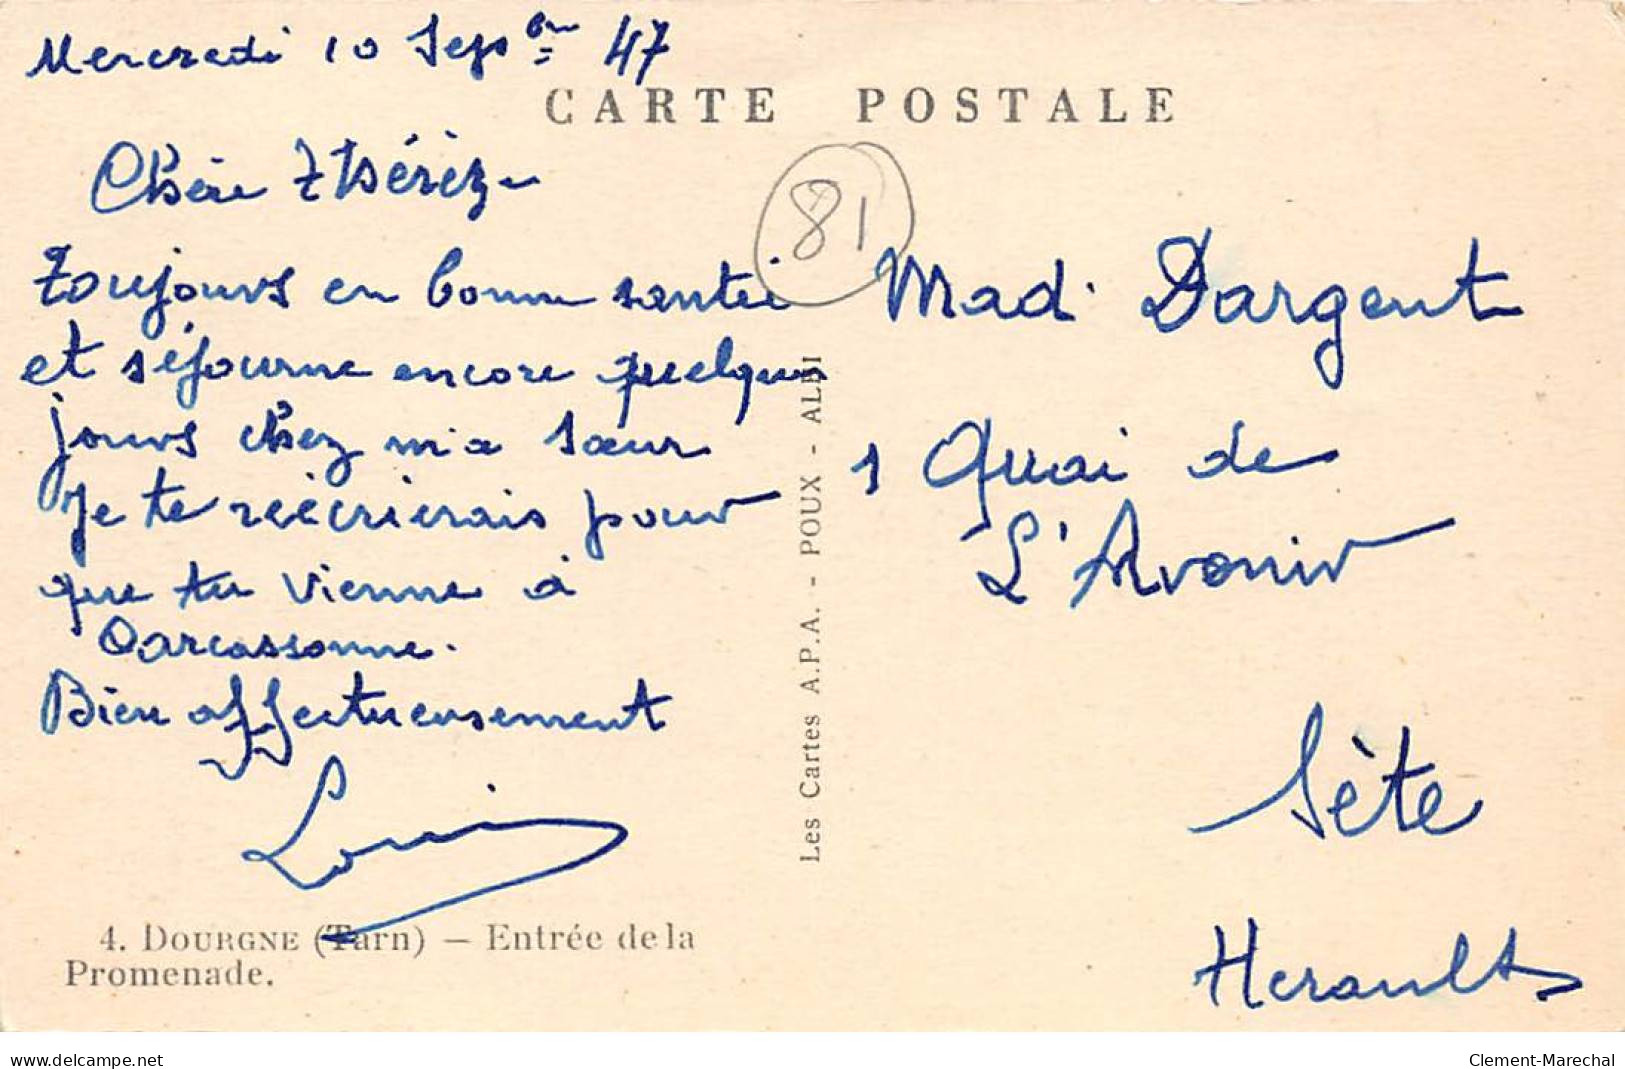 Mercredi 10 Sepbre 47
CARTE POSTALE
Chère Thérèz
81
Toujours en bonne santéi
et séjourne encore quelques
jours chez ma sœur
Je te réécrierais pour
que tu vienne à
Carcassonne.
Bien affectueusement
Louis
4. DOURGNE (Tarn) — Entrée de la
Promenade.
Les Cartes A.P.A. - POUX - ALBI
Mad. Dargent
1 Quai de
L'Avenir
Sète
Herault
www.delcampe.net
Clement-Marechal